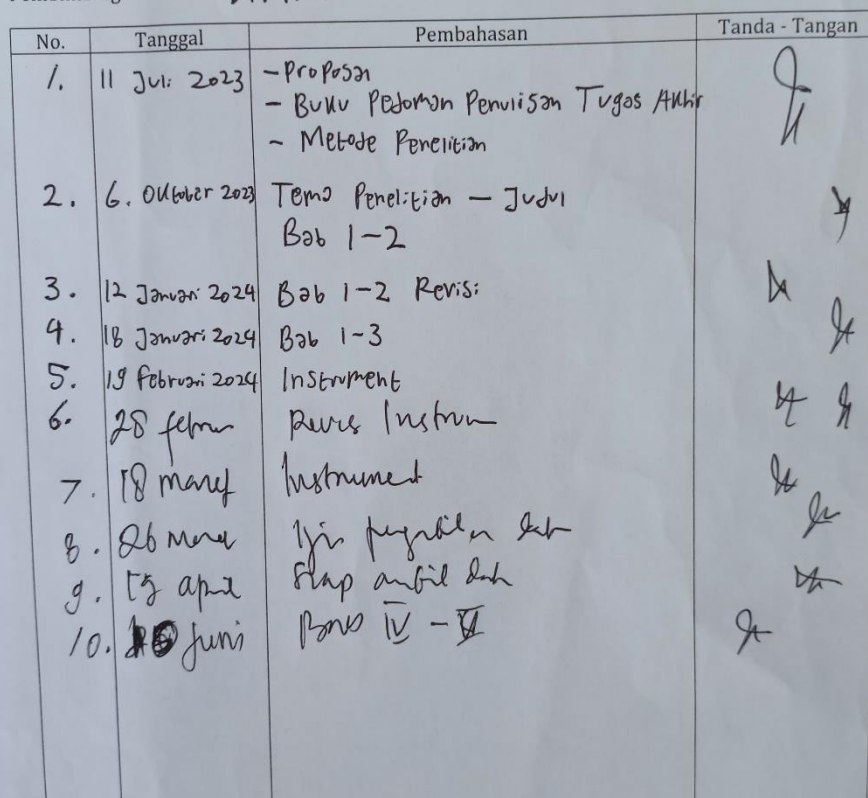 No. Tanggal Pembahasan Tanda - Tangan
1. 11 Juli 2023 - Proposal
- Buku Pedoman Penulisan Tugas Akhir
- Metode Penelitian
2. 6. Oktober 2023 Tema Penelitian - Judul
Bab 1-2
3. 12 Januari 2024 Bab 1-2 Revisi
4. 18 Januari 2024 Bab 1-3
5. 19 Februari 2024 Instrument
6. 28
7. 18 maret Instrument
8. 26 Maret Ijin
9. april ambil
10. Juni IV -